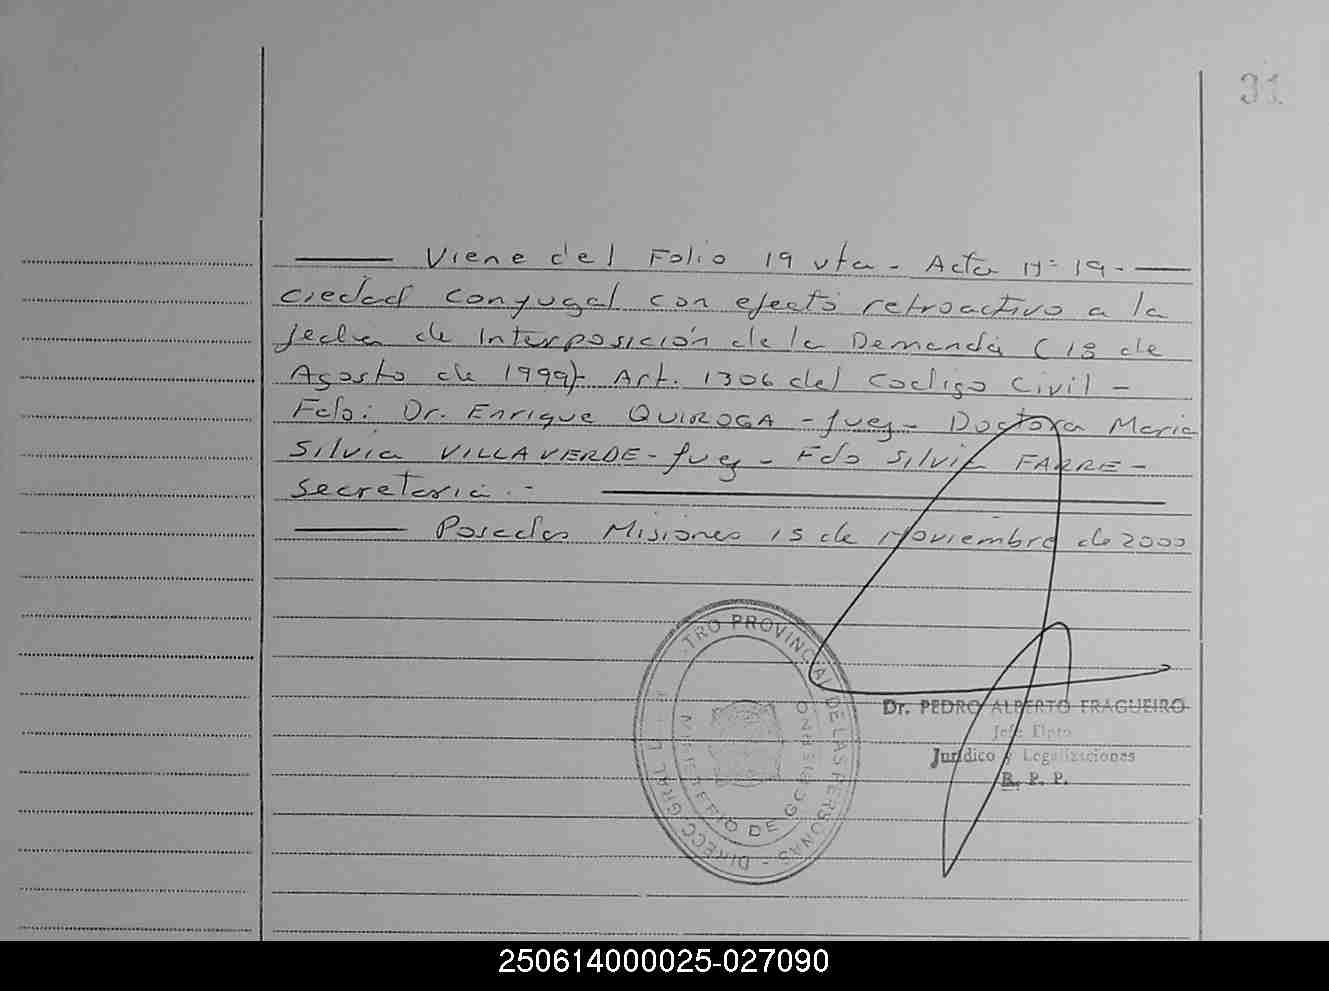 31
Viene del Folio 19 vta - Acta Nº 19 -
ciedad conyugal con efecto retroactivo a la
fecha de Interposición de la Demanda (18 de
Agosto de 1999)- Art. 1306 del Codigo Civil -
Fdo: Dr. Enrique QUIROGA - Juez - Doctora Maria
Silvia VILLAVERDE - Juez - Fdo Silvia FARRE -
secretaria . -
Posadas Misiones 15 de Noviembre de 2000
TRO PROVINCIAL DE LAS PERSONAS - DIRECC GRAL
MINISTERIO DE GOBIERNO
Dr. PEDRO ALBERTO FRAGUEIRO
Jefe Dpto
Jurídico y Legalizaciones
R. P. P.
250614000025-027090